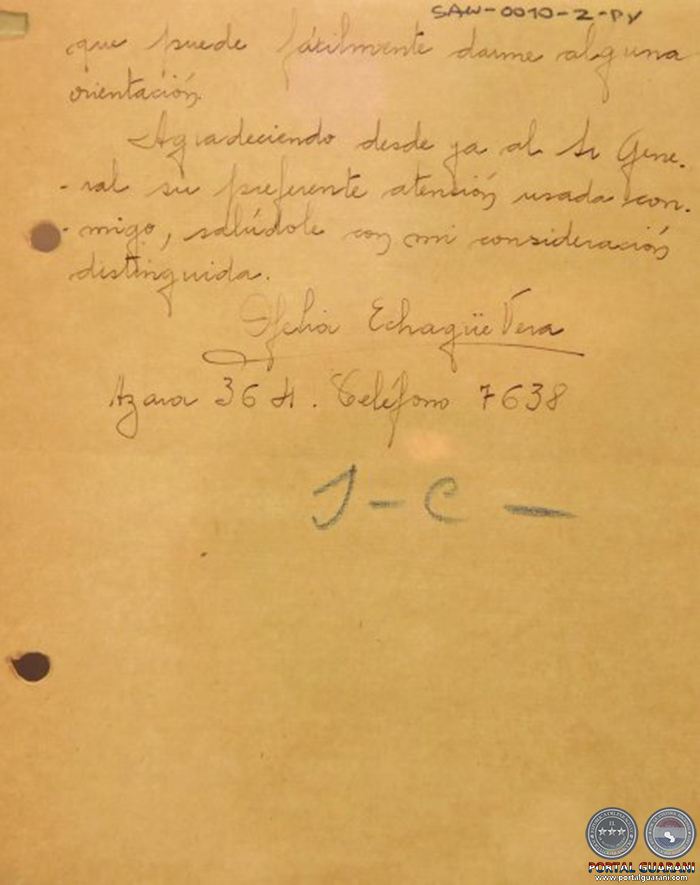 SAW-0010-2-PY
que puede fácilmente darme alguna
orientación.
Agradeciendo desde ya al Sr Gene-
-ral su preferente atención usada con-
-migo, salúdole con mi consideración
distinguida.
Ofelia Echagüe Vera
Azara 364. Teléfono 7638
J - C -
PORTAL GUARANI
www.portalguarani.com